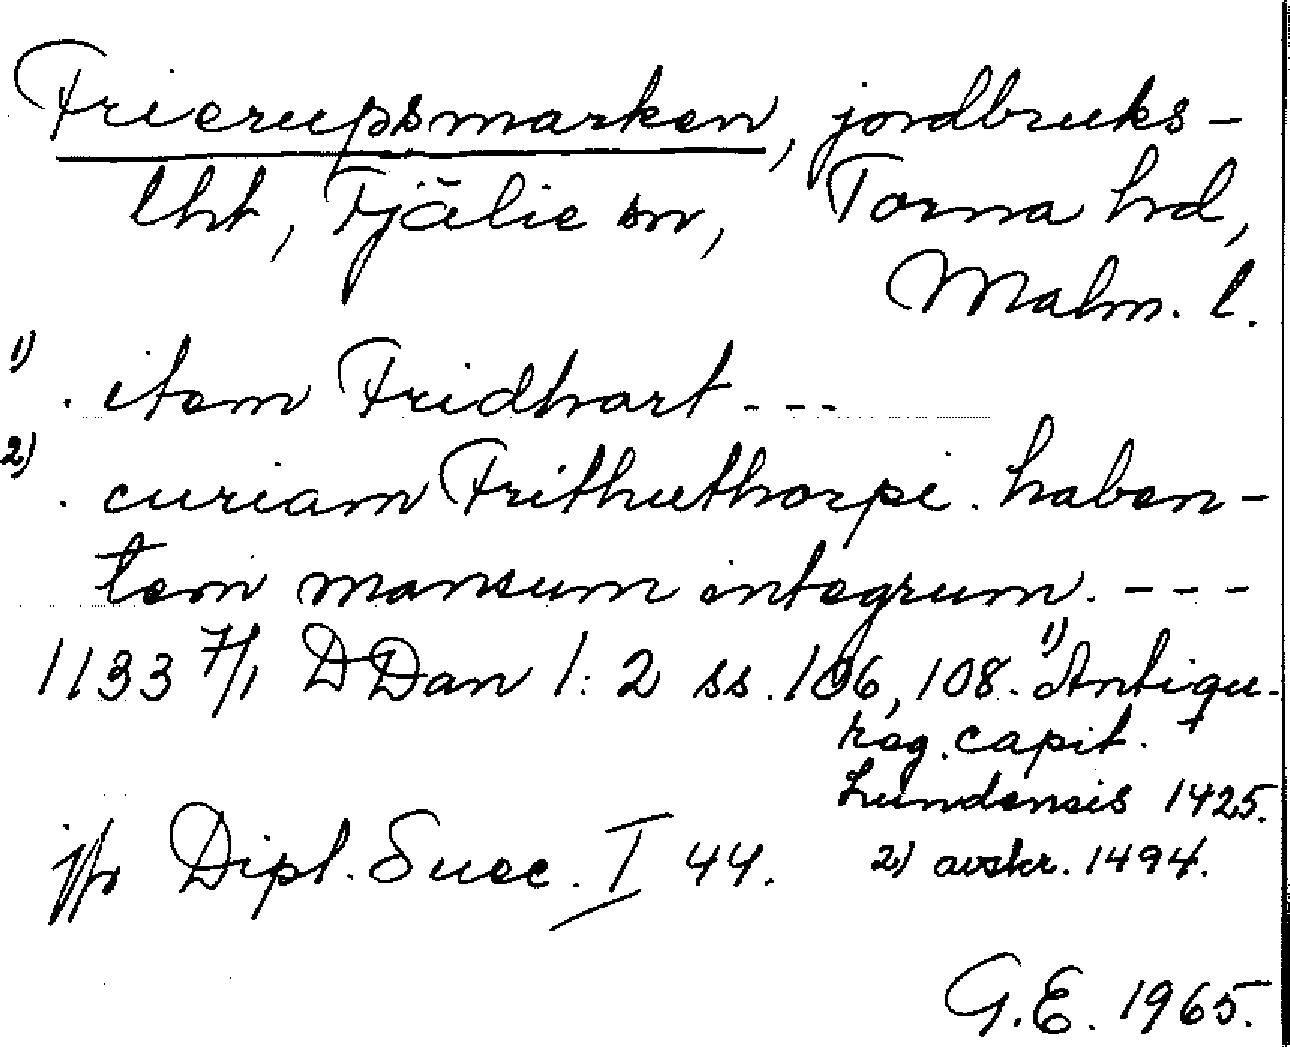 Frierupsmarken, jordbruks-
lht, Fjälie sn, Torna hd,
Malm. l.
1) . item Fridhrart ---
2) . curiam Frithuthorpi. haben-
tem mansum integrum. ---
1133 7/1 DDan 1:2 ss. 106, 108. 1) Antiqu.
reg. capit.
Lundensis 1425.
jfr Dipl. Suec. I 44. 2) avskr. 1494.
G.E. 1965.